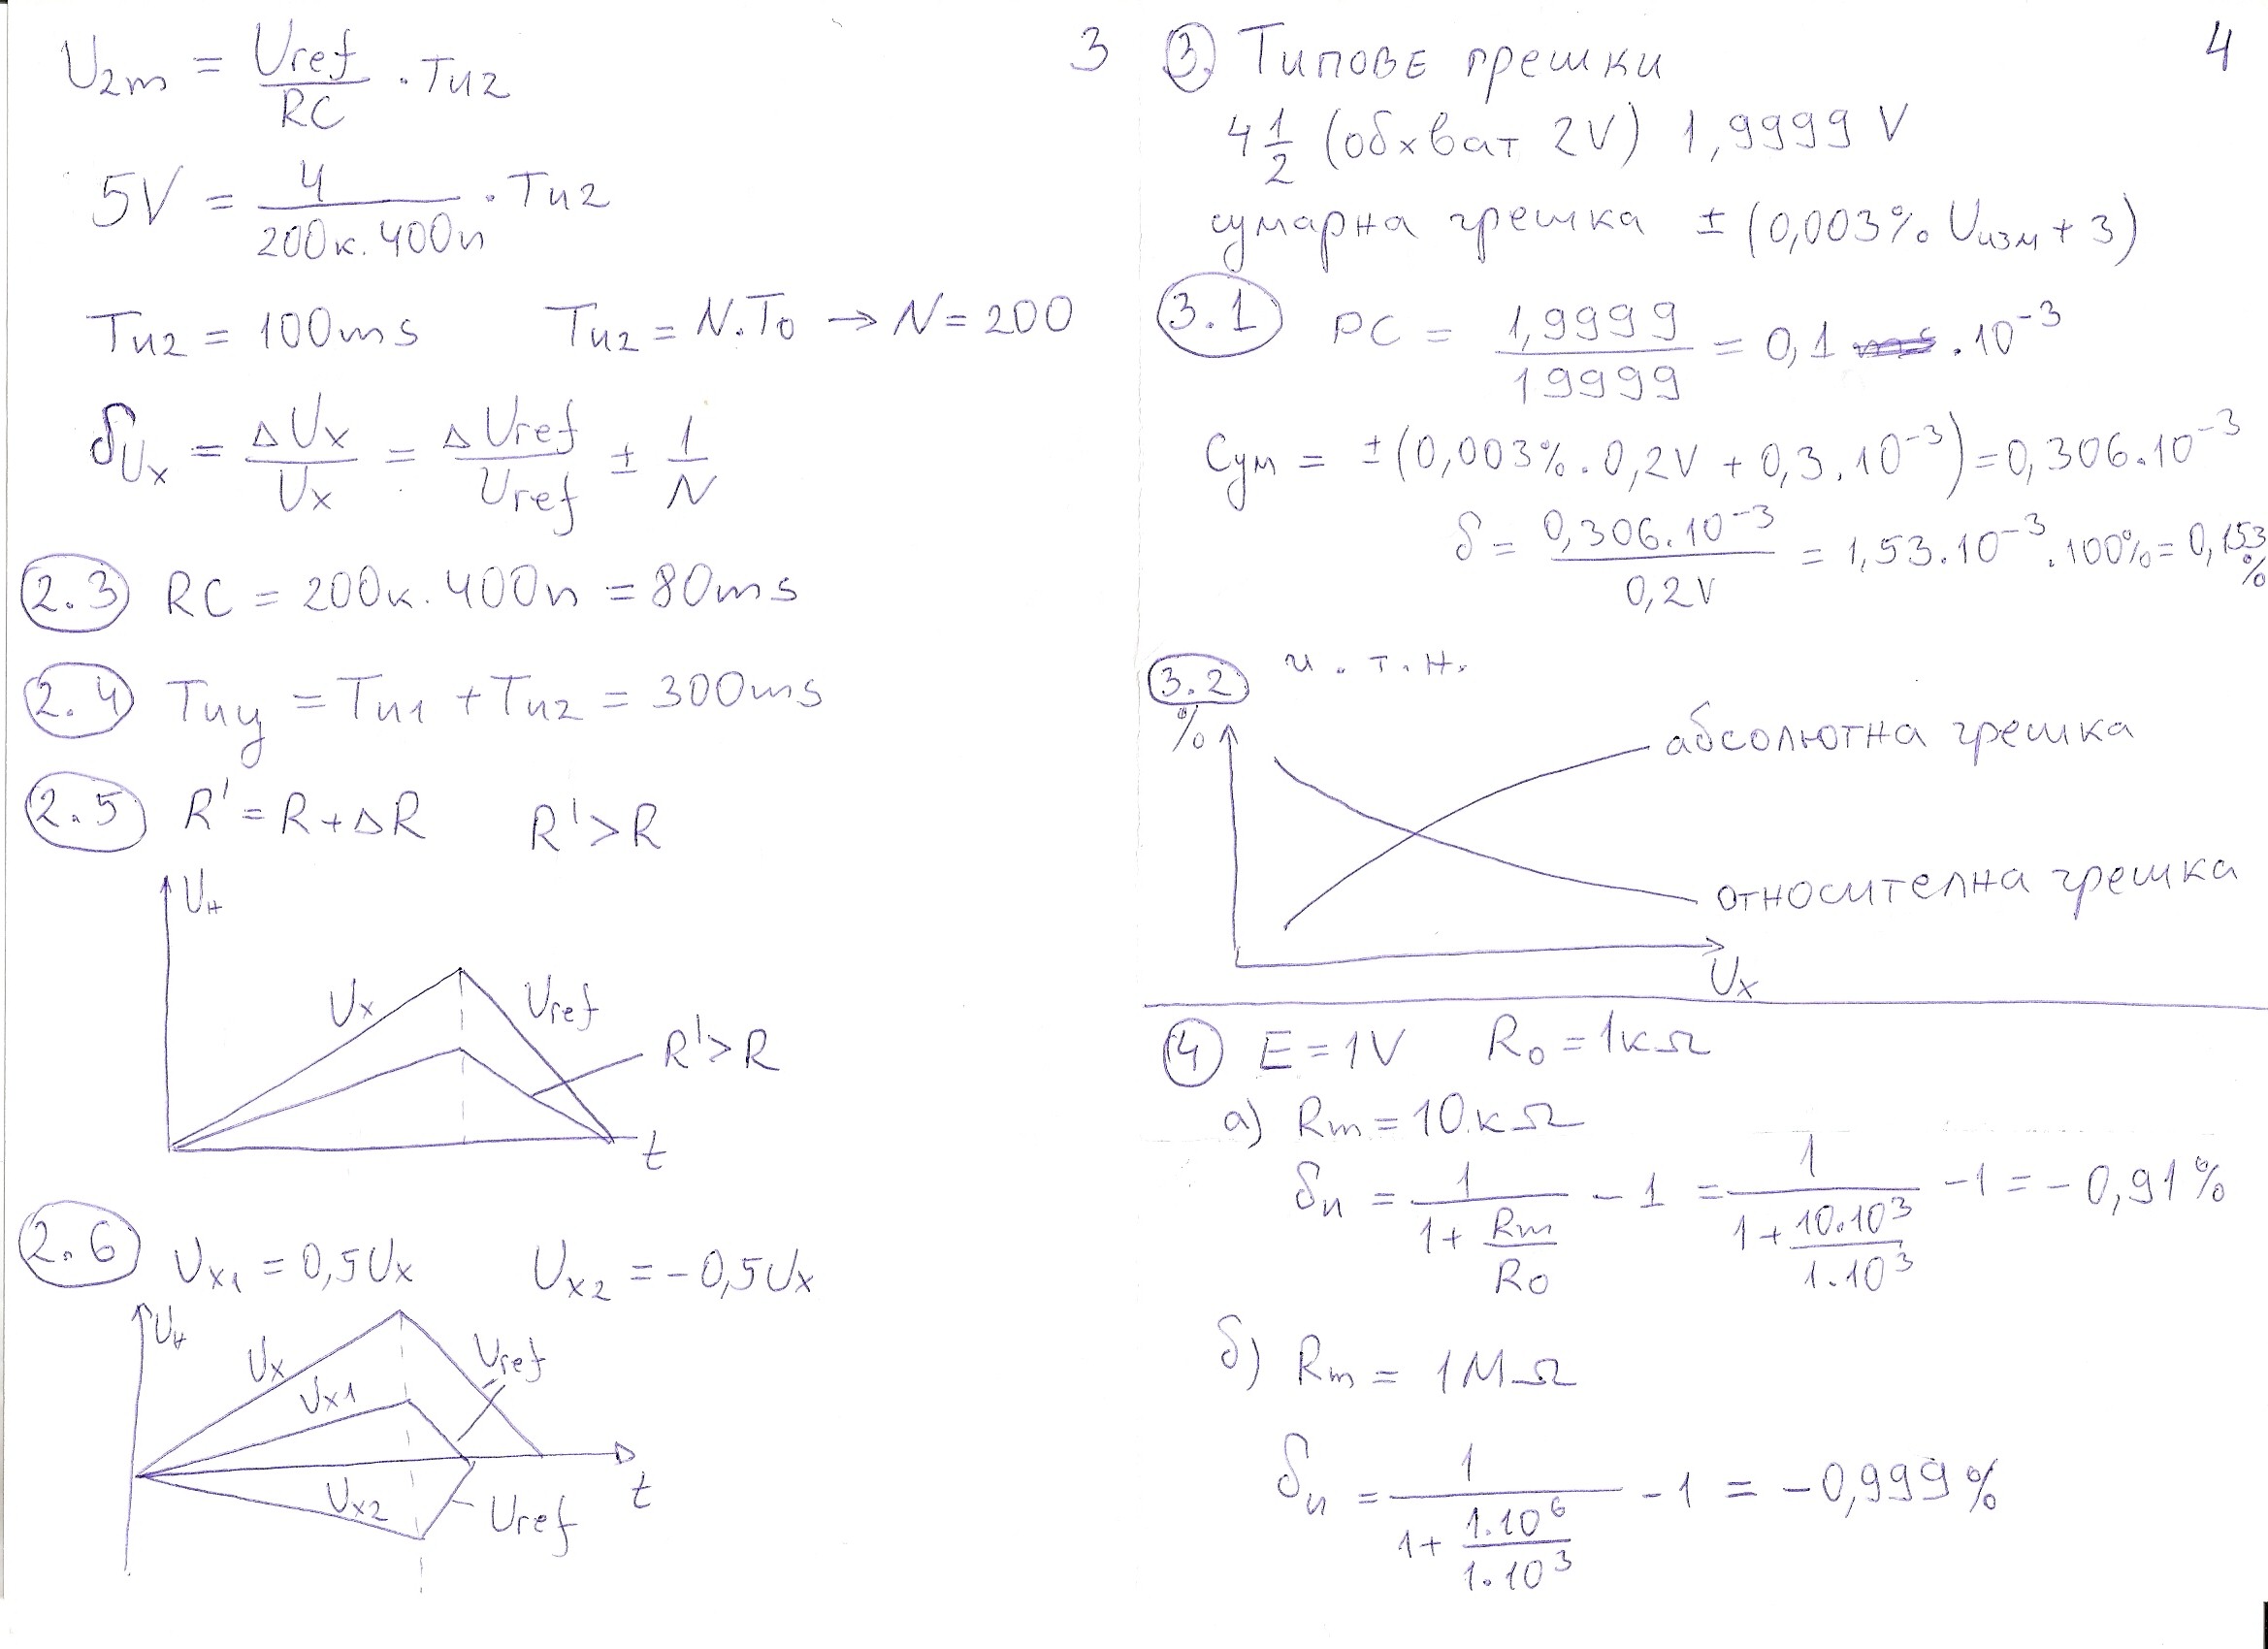 3
U₂ₘ = Uref/RC . Tи2
5V = 4/200к.400n . Tи2
Tи2 = 100ms Tи2 = N.T₀ → N = 200
δUx = ΔUx/Ux = ΔUref/Uref ± 1/N
2.3 RC = 200к.400n = 80ms
2.4 Tиц = Tи1 + Tи2 = 300ms
2.5 R' = R+ΔR R'>R
Uн
Ux
Uref
R'>R
t
2.6 Ux₁ = 0,5Ux Ux₂ = -0,5Ux
Uн
Ux
Uref
Ux1
Ux2
Uref
t
4
3. Типове грешки
4 1/2 (обхват 2V) 1,9999 V
сумарна грешка ± (0,003% Uизм + 3)
3.1 РС = 1,9999/19999 = 0,1 .10⁻³
Сум = ±(0,003%.0,2V + 0,3.10⁻³) = 0,306.10⁻³
δ = 0,306.10⁻³/0,2V = 1,53.10⁻³.100% = 0,153%
и.т.н.
3.2
%
абсолютна грешка
относителна грешка
Ux
4 E = 1V R₀ = 1кΩ
а) Rm = 10кΩ
δи = 1/(1+Rm/R₀) - 1 = 1/(1+10.10³/1.10³) - 1 = -0,91%
б) Rm = 1MΩ
δи = 1/(1+1.10⁶/1.10³) - 1 = -0,999%